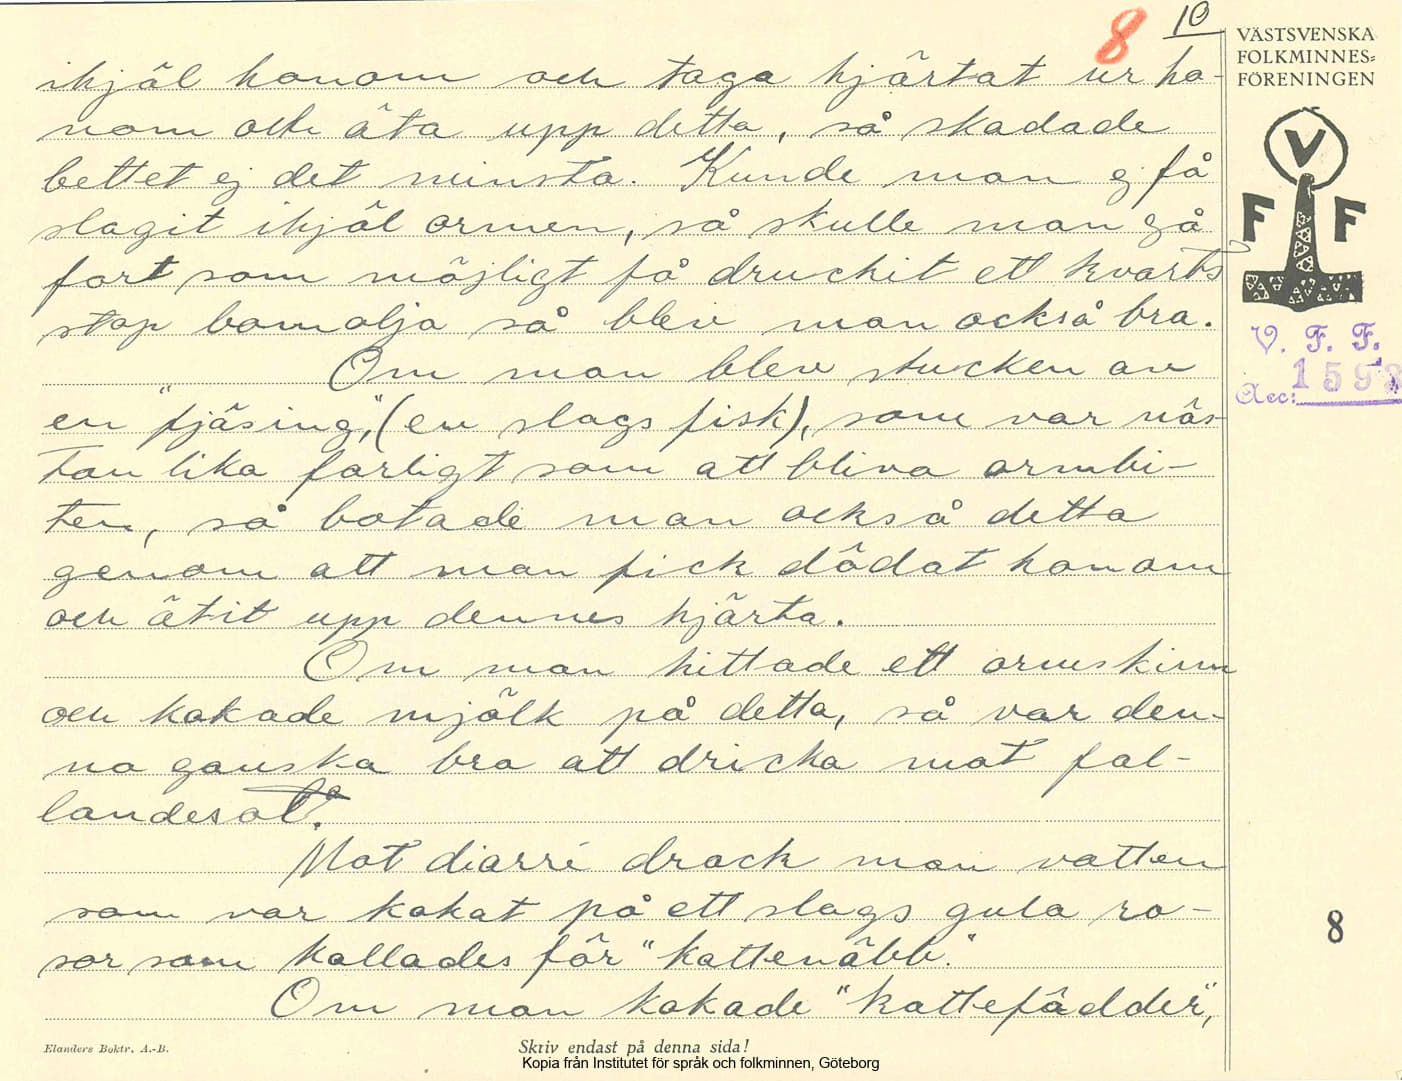 8 10
VÄSTSVENSKA
FOLKMINNES=
FÖRENINGEN
V
F F
V. F. F.
Acc: 1598
ihjäl honom och taga hjärtat ur ho-
nom och äta upp detta, så skadade
bettet ej det minsta. Kunde man ej få
slagit ihjäl ormen, så skulle man så
fort som möjligt få druckit ett kvarts
stop bomolja så blev man också bra.
Om man blev stucken av
en "fjäsing", (en slags fisk), som var näs-
tan lika farligt som att bliva ormbi-
ten, så botade man också detta
genom att man fick dödat honom
och ätit upp dennes hjärta.
Om man hittade ett ormskinn
och kokade mjölk på detta, så var den-
na ganska bra att dricka mot fal-
landesot.
Mot diarré drack man vatten
som var kokat på ett slags gula ro-
sor som kallades för "kattenäbb".
Om man kokade "kattefädder",
8
Elanders Boktr. A.-B.
Skriv endast på denna sida!
Kopia från Institutet för språk och folkminnen, Göteborg